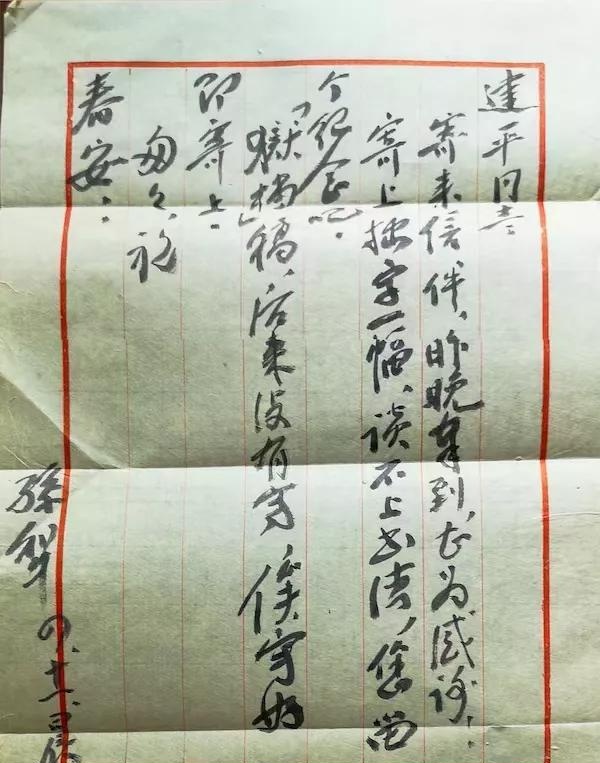 建平同志：
寄来信件，昨晚拿到，甚为感谢：
寄上拙字一幅，谈不上书法，您留
个纪念吧：
稿，后来没有写，俟写好
即寄上：
匆匆，祝
春安：
孙犁 四、十一日